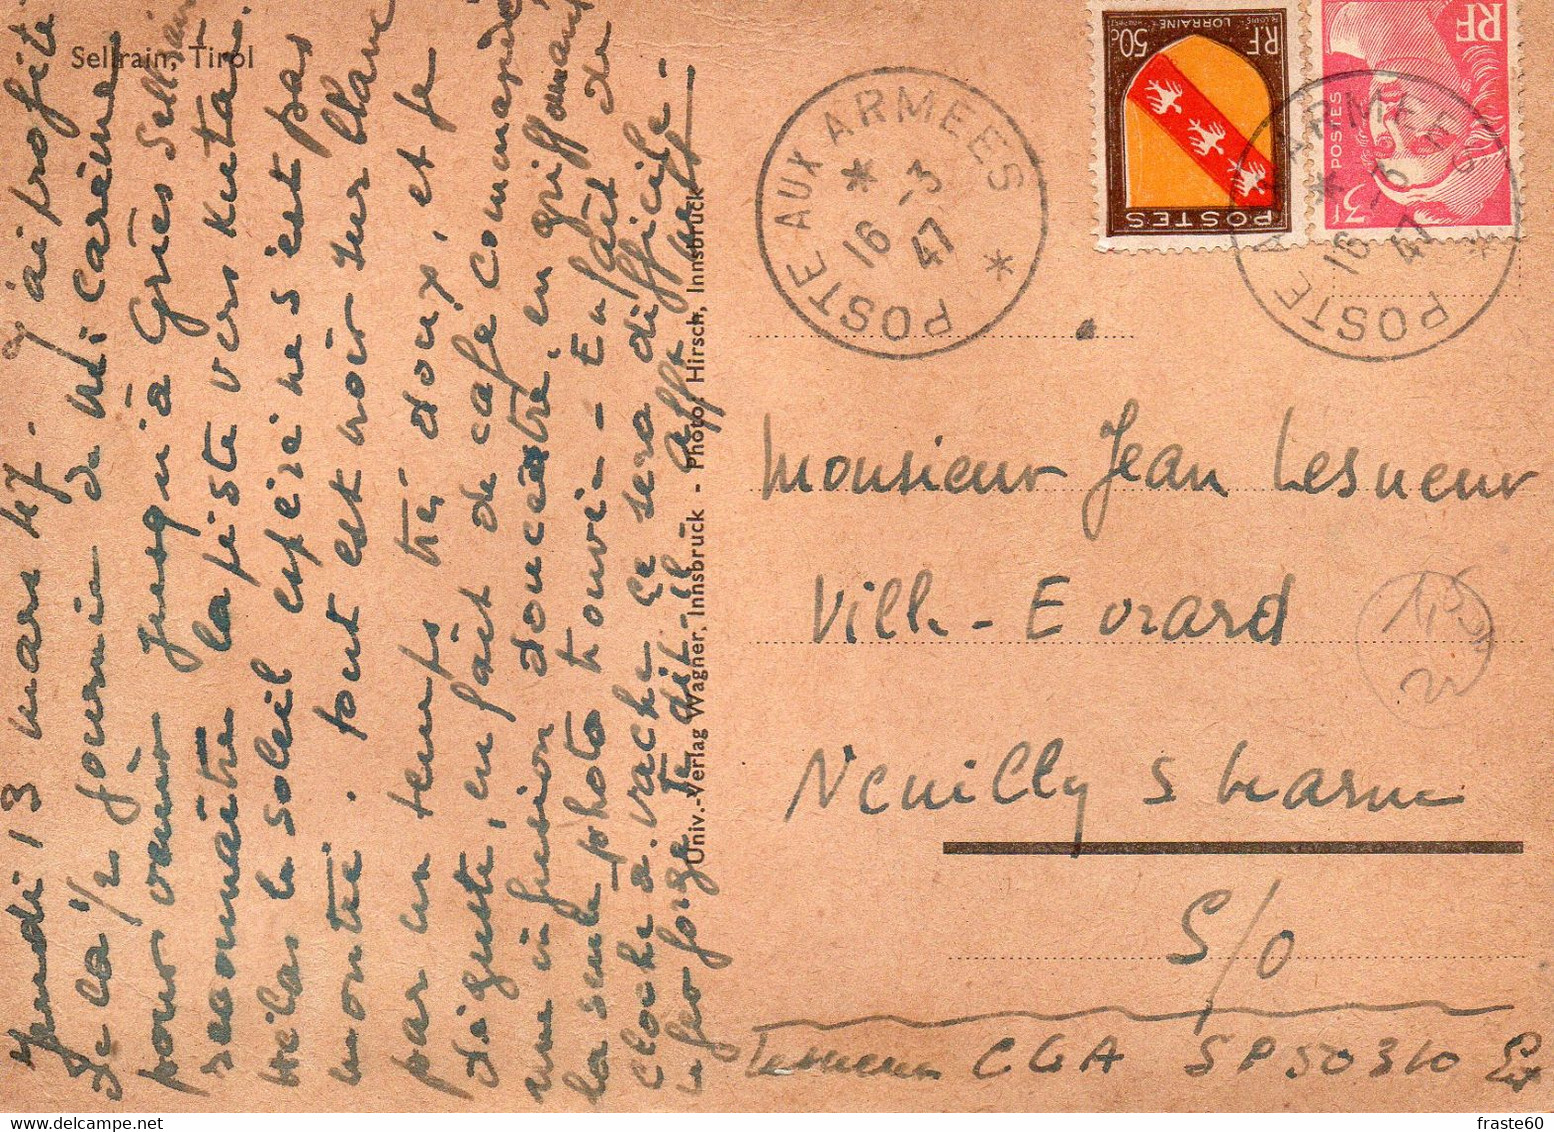 Sellrain, Tirol
Jeudi 13 mars 47. J'ai profité
de la 1/2 journée de mi carême
pour venir jusqu'à Gries Sellrain
reconnaître la piste vers Kutai.
hélas le soleil espéré ne s'est pas
montré. tout est noir sur blanc
par un temps très doux, et je
déguste, en fait de café commandé
une infusion douceâtre, en griffonnant
la seule photo trouvée - En fait de
cloche à vache ce sera difficile -
le forge te dit-il -
Univ.-Verlag Wagner, Innsbruck - Photo: Hirsch, Innsbruck
POSTE AUX ARMEES
16 -3
47
50c
RF
LORRAINE
POSTES
RF
POSTES
3f
POSTE AUX ARMEES
16 -3
47
Monsieur Jean Lesueur
Ville-Evrard
Neuilly s Marne
S/O
Lesueur CGA SP50310
fraste60